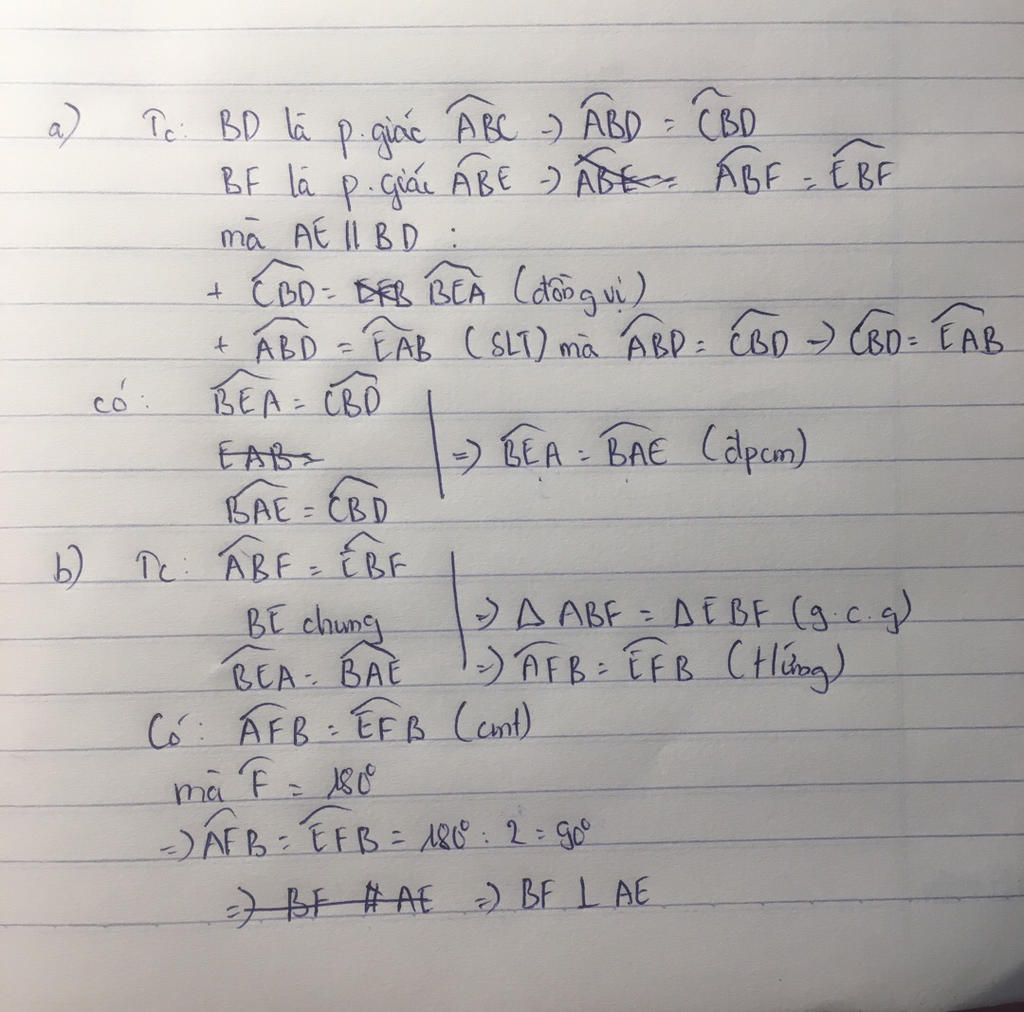 a) Tc: BD là p.giác ABC → ABD = CBD
BF là p.giác ABE → ABE = ABF = EBF
mà AE || BD :
+ CBD = BEA (đồng vị)
+ ABD = EAB (SLT) mà ABD = CBD → CBD = EAB
có: BEA = CBD
EAB =
=> BEA = BAE (đpcm)
BAE = CBD
b) Tc: ABF = EBF
BE chung => Δ ABF = Δ EBF (g.c.g)
BEA = BAE => AFB = EFB (tứng)
Có: AFB = EFB (cmt)
mà F = 180°
=> AFB = EFB = 180° : 2 = 90°
=> BF # AE => BF ⊥ AE